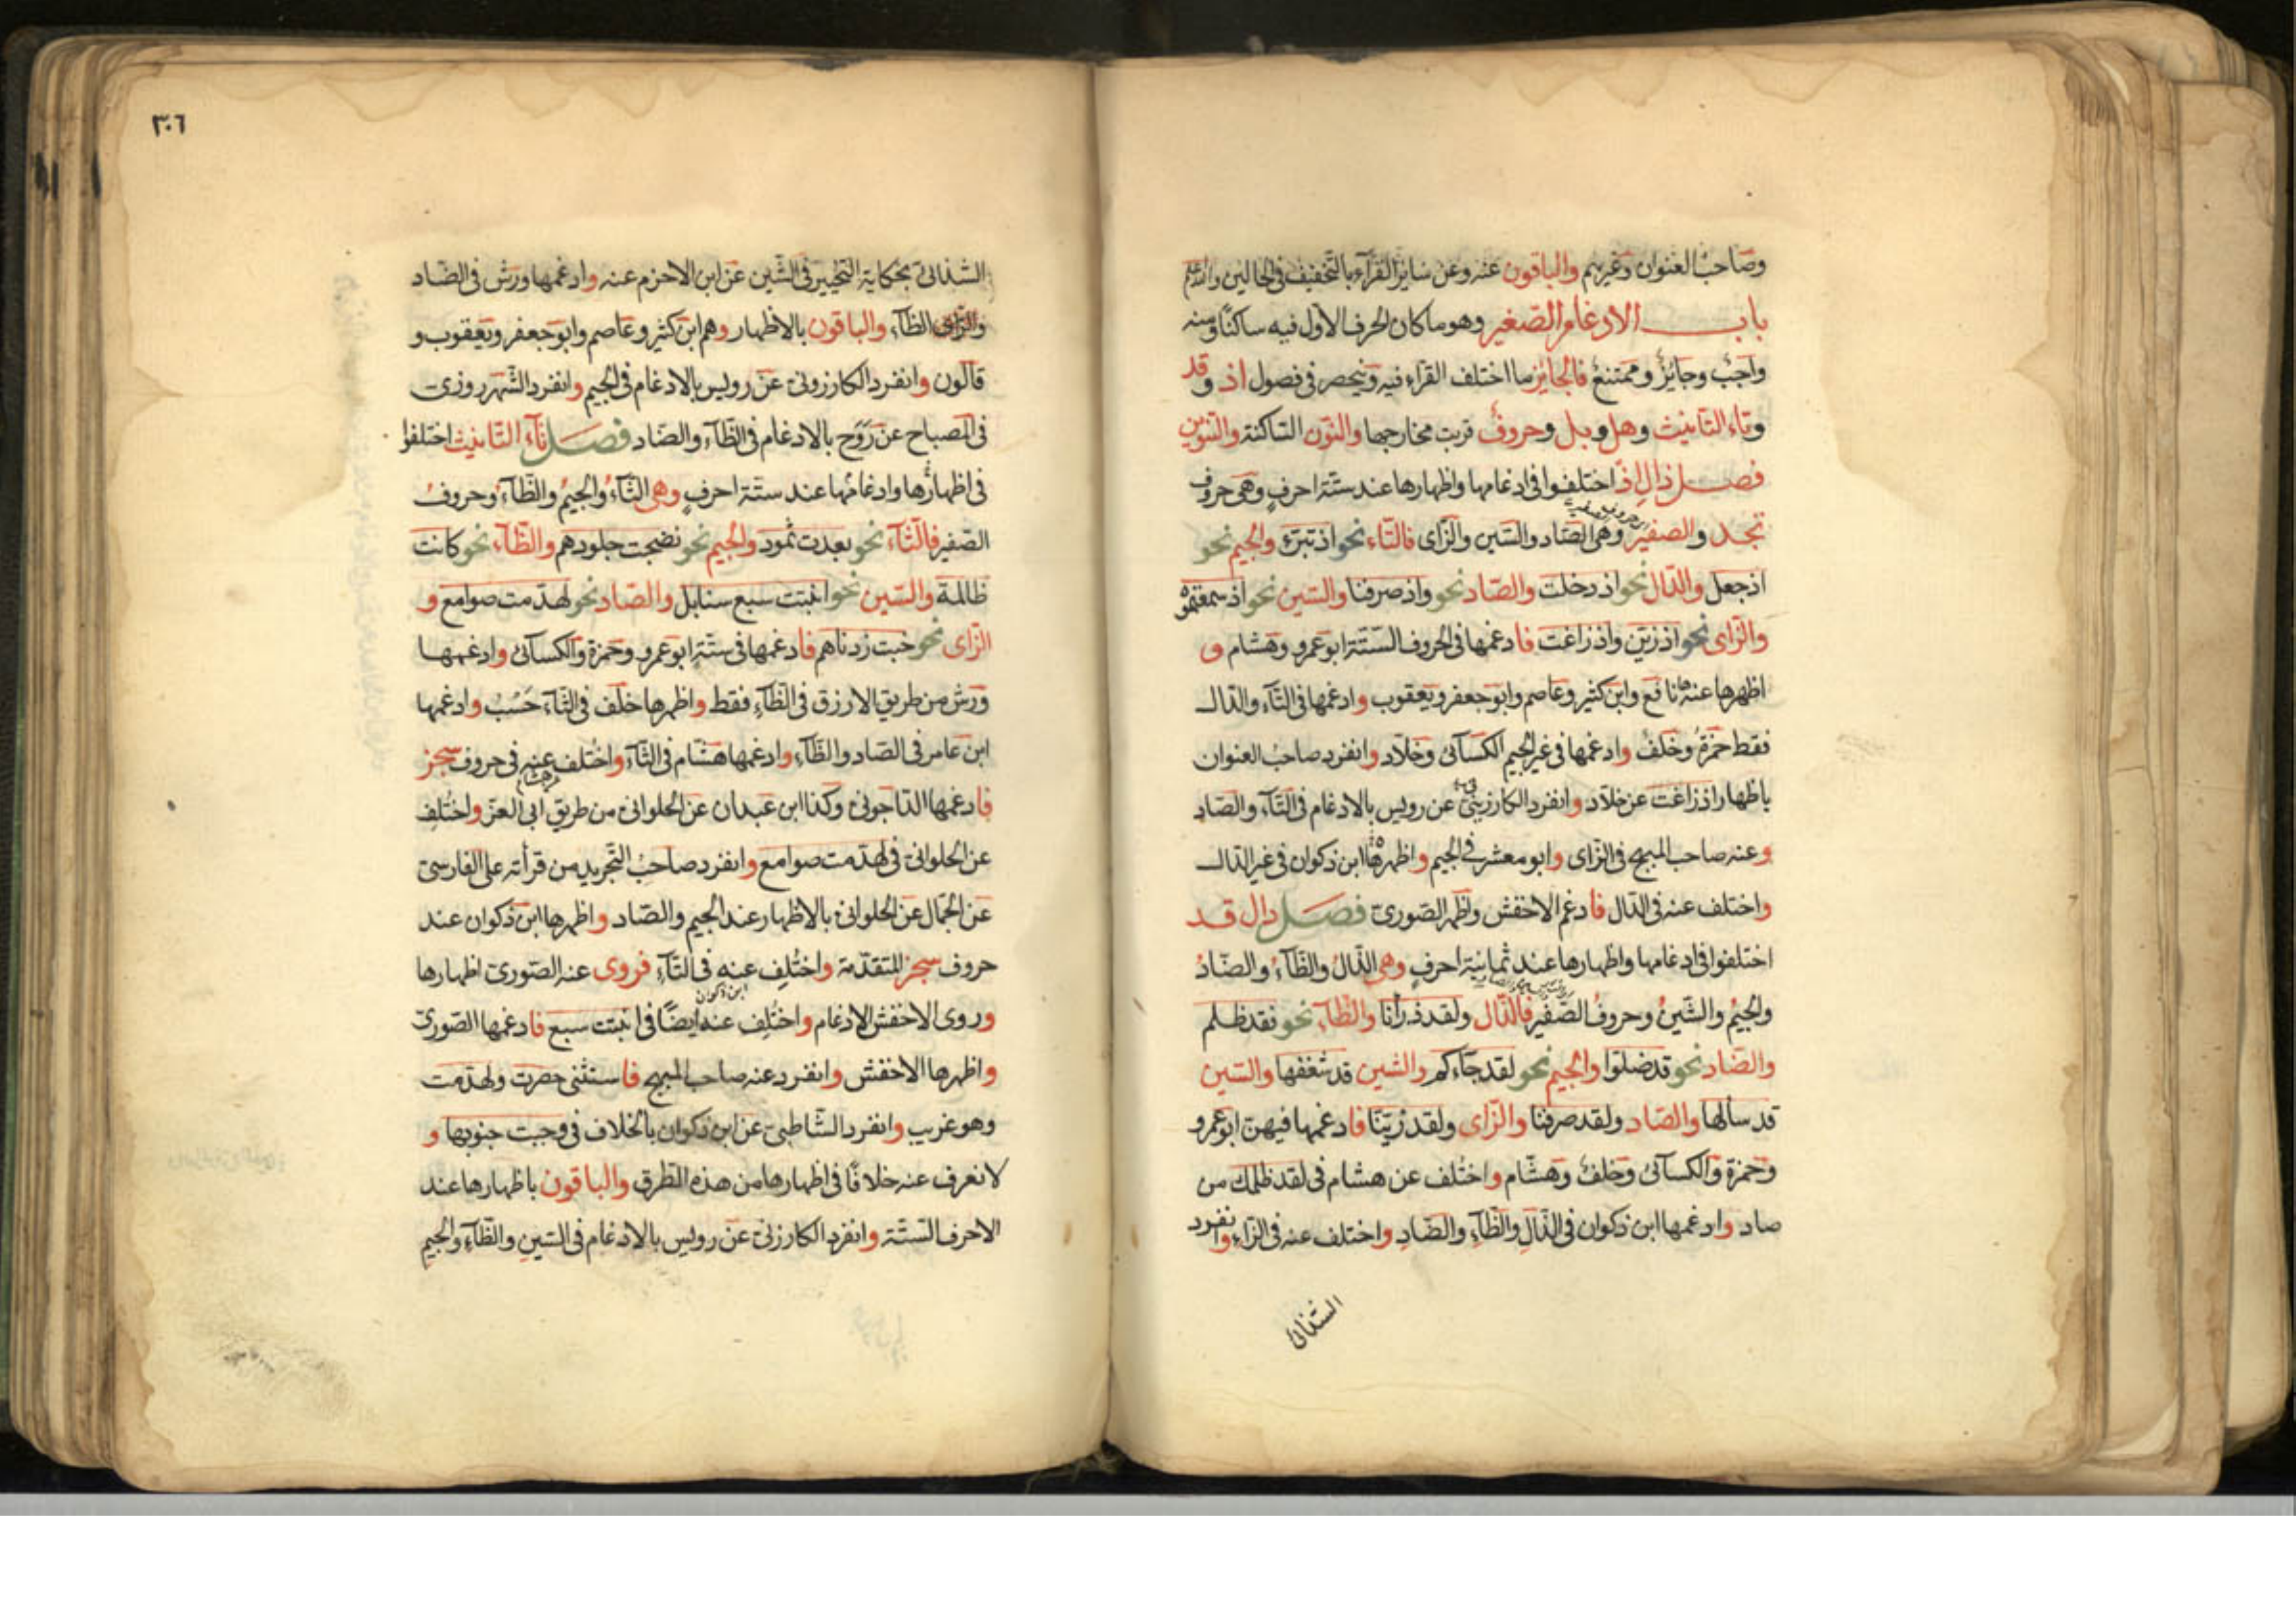 وصاحب العنوان وغيرهم والباقون عنه وعن سائر القرآء بالتخفيف في الحالين والله اعلم
باب الادغام الصغير وهو ما كان الحرف الاول فيه ساكنًا ومنه
واجبٌ وجايزٌ وممتنعٌ فالجايز ما اختلف القرّاء فيه وينحصر في فصول اذ وقد
وتاء التانيث وهل وبل وحروفٌ قربت مخارجها والنون الساكنة والتنوين
فصل ذال اذ اختلفوا في ادغامها واظهارها عند ستة احرفٍ وهي حروف
تجد والصفير وهي الصّاد والسّين والزّاى فالتّاء نحو اذ تبرّء والجيم نحو
اذ جعل والدّال نحو اذ دخلت والصّاد نحو واذ صرفنا والسّين نحو اذ سمعتموه
والزّاى نحو اذ زيّن واذ زاغت فادغمها في الحروف السّتّة ابو عمرو وهشام و
اظهرها عندها نافع وابن كثير وعاصم وابو جعفر ويعقوب وادغمها في التّآء والدّال
فقط حمزةُ وخلفٌ وادغمها في غير الجيم الكسآئى وخلّاد وانفرد صاحب العنوان
باظهار اذ زاغت عن خلّاد وانفرد الكارزينىّ عن رويس بالادغام في التّآء والصّاد
وعنه صاحب المبهج في الزّاى وابو معشر في الجيم واظهرها ابن ذكوان في غير الدّال
واختلف عنه في الدّال فادغم الاخفش واظهر الصّورىّ فصل دال قد
اختلفوا في ادغامها واظهارها عند ثمانية احرفٍ وهي الذّالُ والظّآءُ والضّادُ
والجيمُ والشّينُ وحروفُ الصّفير فالذّال ولقد ذرأنا والظّآء نحو فقد ظلم
والضّاد نحو قد ضلّوا والجيم نحو لقد جآءكم والشين قد شغفها والسّين
قد سألها والصّاد ولقد صرفنا والزّاى ولقد زيّنّا فادغمها فيهنّ ابو عمرو
وحمزة والكسآئى وخلف وهشام واختُلف عن هشام في لقد ظلمك من
صاد وادغمها ابن ذكوان في الذّالِ والظّآءِ والضّادِ واختلف عنه في الزّاء وانفرد
الشنائى
٣٠٦
الشذائىّ بحكاية التخيير في الشّين عن ابن الاخرم عنه وادغمها ورش في الضّاد
والظآء والباقون بالاظهار وهم ابن كثير وعاصم وابو جعفر ويعقوب و
قالون وانفرد الكارزونى عن رويس بالادغام في الجيم وانفرد الشّهرروزى
في المصباح عن رَوْح بالادغام في الظّآء والضّاد فصل تآء التّانيث اختلفوا
في اظهارها وادغامها عند ستّة احرفٍ وهى الثّآءُ والجيمُ والظّآءُ وحروفُ
الصّفير فالثّآء نحو بعدت ثمود والجيم نحو نضجت جلودهم والظّآء نحو كانت
ظالمة والسّين نحو انبتت سبع سنابل والصّاد نحو لهدّمت صوامع و
الزّاى نحو خبت زدناهم فادغمها في ستّةٍ ابو عمرو وحمزة والكسآئى وادغمها
ورش من طريق الازرق في الظّآءِ فقط واظهرها خلف في الثّآء حَسْبُ وادغمها
ابن عامر في الصّاد والظّآء وادغمها هشام في الثّآء واختُلف عنه في حروف سجز
فادغمها الدّاجونىّ وكذا ابن عبدان عن الحلوانىّ من طريق ابى العزّ واختُلِف
عن الحلوانىّ في لهدّمت صوامع وانفرد صاحبُ التّجريد من قرأته على الفارسىّ
عن الجمّال عن الحلوانى بالاظهار عند الجيم والصّاد واظهرها ابن ذكوان عند
حروف سجز المتقدّمة واختُلِف عنه في الثّآءِ فروى عنه الصّورىّ اظهارها
وروى الاخفش الادغام واختُلِف عنه ايضًا في انبتت سبع فادغمها الصّورىّ
ابن ذكوان
واظهرها الاخفش وانفرد عنه صاحب المبهج فاستثنى حصرت ولهدّمت
وهو غريب وانفرد الشّاطبىّ عن ابن ذكوان بالخلاف في وجبت جنوبها و
لا نعرف عنه خلافًا في اظهارها من هذه الطّرق والباقون باظهارها عند
الاحرف السّتّة وانفرد الكارزنىّ عن رويس بالادغام في السّينِ والظّآءِ والجيمِ